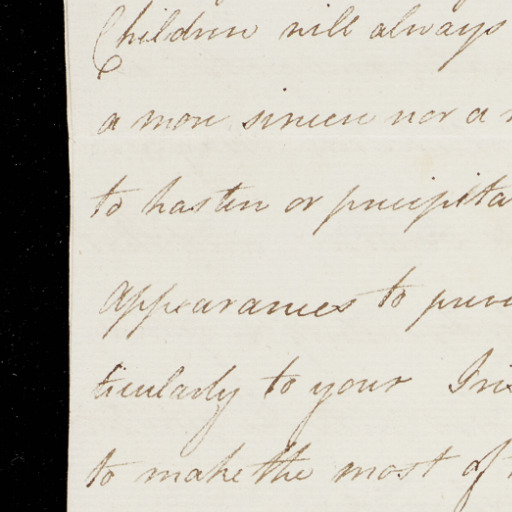 Children will always
a more sincere nor a
to hasten or precipita
Appearances to
ticularly to your Iris
to make the most of